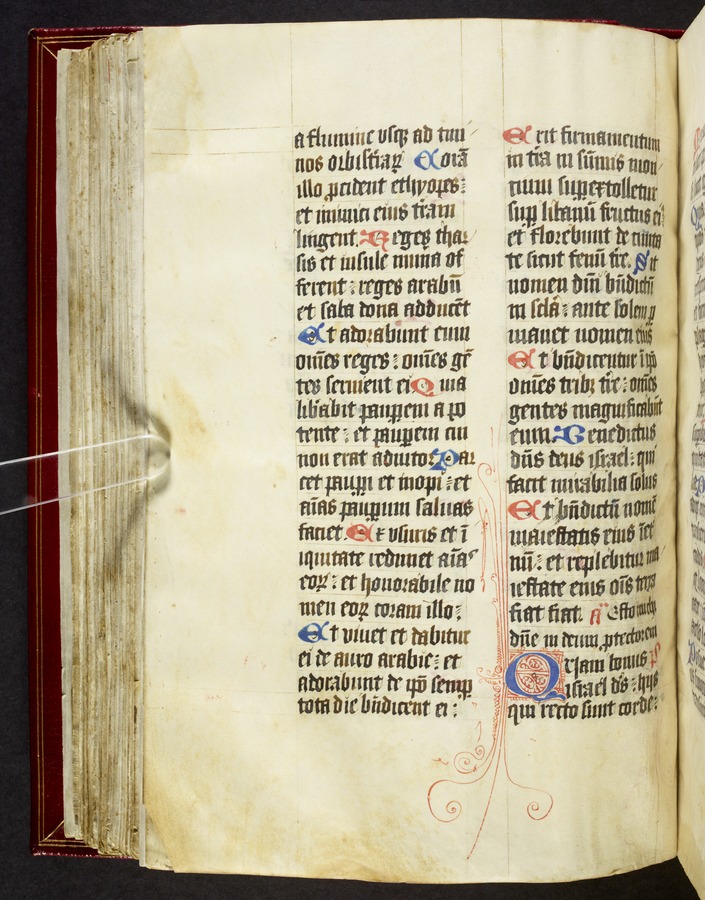 a flumine vsqꝫ ad tmi
nos orbis tr̄aꝝ Corā
illo ꝓcident ethyopes:
et inimici eius tr̄am
lingent. Reges thar
sis et insule muna of
ferent: reges arabū
et saba dona adducēt
Et adorabunt eum
om̄es reges: om̄es gē
tes seruient ei Quia
lib̄abit paupem a po
tente: et paupem cui
non erat adiutor: Par
cet paupi et inopi: et
aīas paupum saluas
faciet. Ex vsuris et ī
iquitate redimet aīas
eoꝝ: et honorabile no
men eoꝝ coram illo:
Et viuet et dabitur
ei de auro arabie: et
adorabunt de ip̄o semp
tota die bn̄dicent ei:
Erit firmamentum
in tr̄a in sūmis mon
cium suꝑextolletur
suꝑ libanū fructus ei
et florebunt de ciuita
te sicut fenū tr̄e. Sit
nomen dn̄i bn̄dictū
in sclā: ante solem ꝑ
manet nomen eius
Et bn̄dicentur ī ip̄o
om̄es tribꝫ tr̄e: om̄es
gentes magnificabūt
eum. Benedictus
dn̄s deus israel: qui
facit mirabilia solus
Et bn̄dictū nomē
maiestatis eius ī et
nū: et replebitur ma
iestate eius oīs terra
fiat fiat. a Esto
dn̄e in deum ꝓtectorem
Quam bonus p̄s
israel d̄s: hijs
qui recto sunt corde: